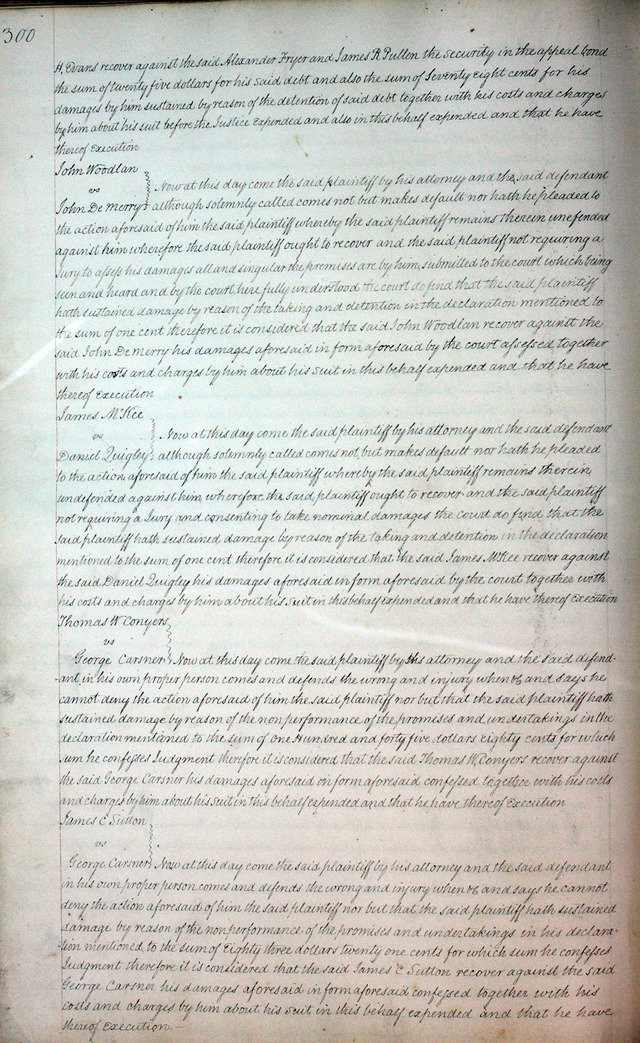 300
H. Evans recover against the said Alexander Fryer and James R Pullon the security in the appeal bond
the sum of twenty five dollars for his said debt and also the sum of Seventy eight cents for his
damages by him sustained by reason of the detention of said debt together with his costs and charges
by him about his suit before the Justice Expended and also in this behalf expended and that he have
thereof Execution
John Woodlan
vs
Now at this day come the said plaintiff by his attorney and the said defendant
John De merry although solemnly called comes not but makes default nor hath he pleaded to
the action aforesaid of him the said plaintiff whereby the said plaintiff remains therein undefended
against him wherefore the said plaintiff ought to recover and the said plaintiff not requiring a
Jury to assess his damages all and singular the premises are by him submitted to the court which being
seen and heard and by the court here fully understood the court do find that the said plaintiff
hath sustained damage by reason of the taking and detention in the declaration mentioned to
the sum of one cent therefore it is considered that the said John Woodlan recover against the
said John De merry his damages aforesaid in form aforesaid by the court assessed together
with his costs and charges by him about his suit in this behalf expended and that he have
thereof Execution
James McKee
vs
Now at this day come the said plaintiff by his attorney and the said defendant
Daniel Quigley although solemnly called comes not but makes default nor hath he pleaded
to the action aforesaid of him the said plaintiff whereby the said plaintiff remains therein
undefended against him, wherefore the said plaintiff ought to recover and the said plaintiff
not requiring a Jury and consenting to take nominal damages the court do find that the
said plaintiff hath sustained damage by reason of the taking and detention in the declaration
mentioned to the sum of one cent therefore it is considered that the said James McKee recover against
the said Daniel Quigley his damages aforesaid in form aforesaid by the court together with
his costs and charges by him about his suit in this behalf expended and that he have thereof Execution
Thomas W Conyers
vs
George Carsner Now at this day come the said plaintiff by his attorney and the said defend-
-ant in his own proper person comes and defends the wrong and injury when &c and says he
cannot deny the action aforesaid of him the said plaintiff nor but that the said plaintiff hath
sustained damage by reason of the nonperformance of the promises and undertakings in the
declaration mentioned to the sum of one Hundred and forty five dollars eighty cents for which
sum he confesses Judgment therefore it is considered that the said Thomas W. Conyers recover against
the said George Carsner his damages aforesaid in form aforesaid confessed together with his costs
and charges by him about his suit in this behalf expended and that he have thereof Execution
James C Sutton
vs
George Carsner Now at this day come the said plaintiff by his attorney and the said defendant
in his own proper person comes and defends the wrong and injury when &c and says he cannot
deny the action aforesaid of him the said plaintiff nor but that the said plaintiff hath sustained
damage by reason of the nonperformance of the promises and undertakings in his declara-
-tion mentioned to the sum of Eighty three dollars twenty one cents for which sum he confesses
Judgment therefore it is considered that the said James C Sutton recover against the said
George Carsner his damages aforesaid in form aforesaid confessed together with his
costs and charges by him about his suit in this behalf expended and that he have
thereof Execution. —